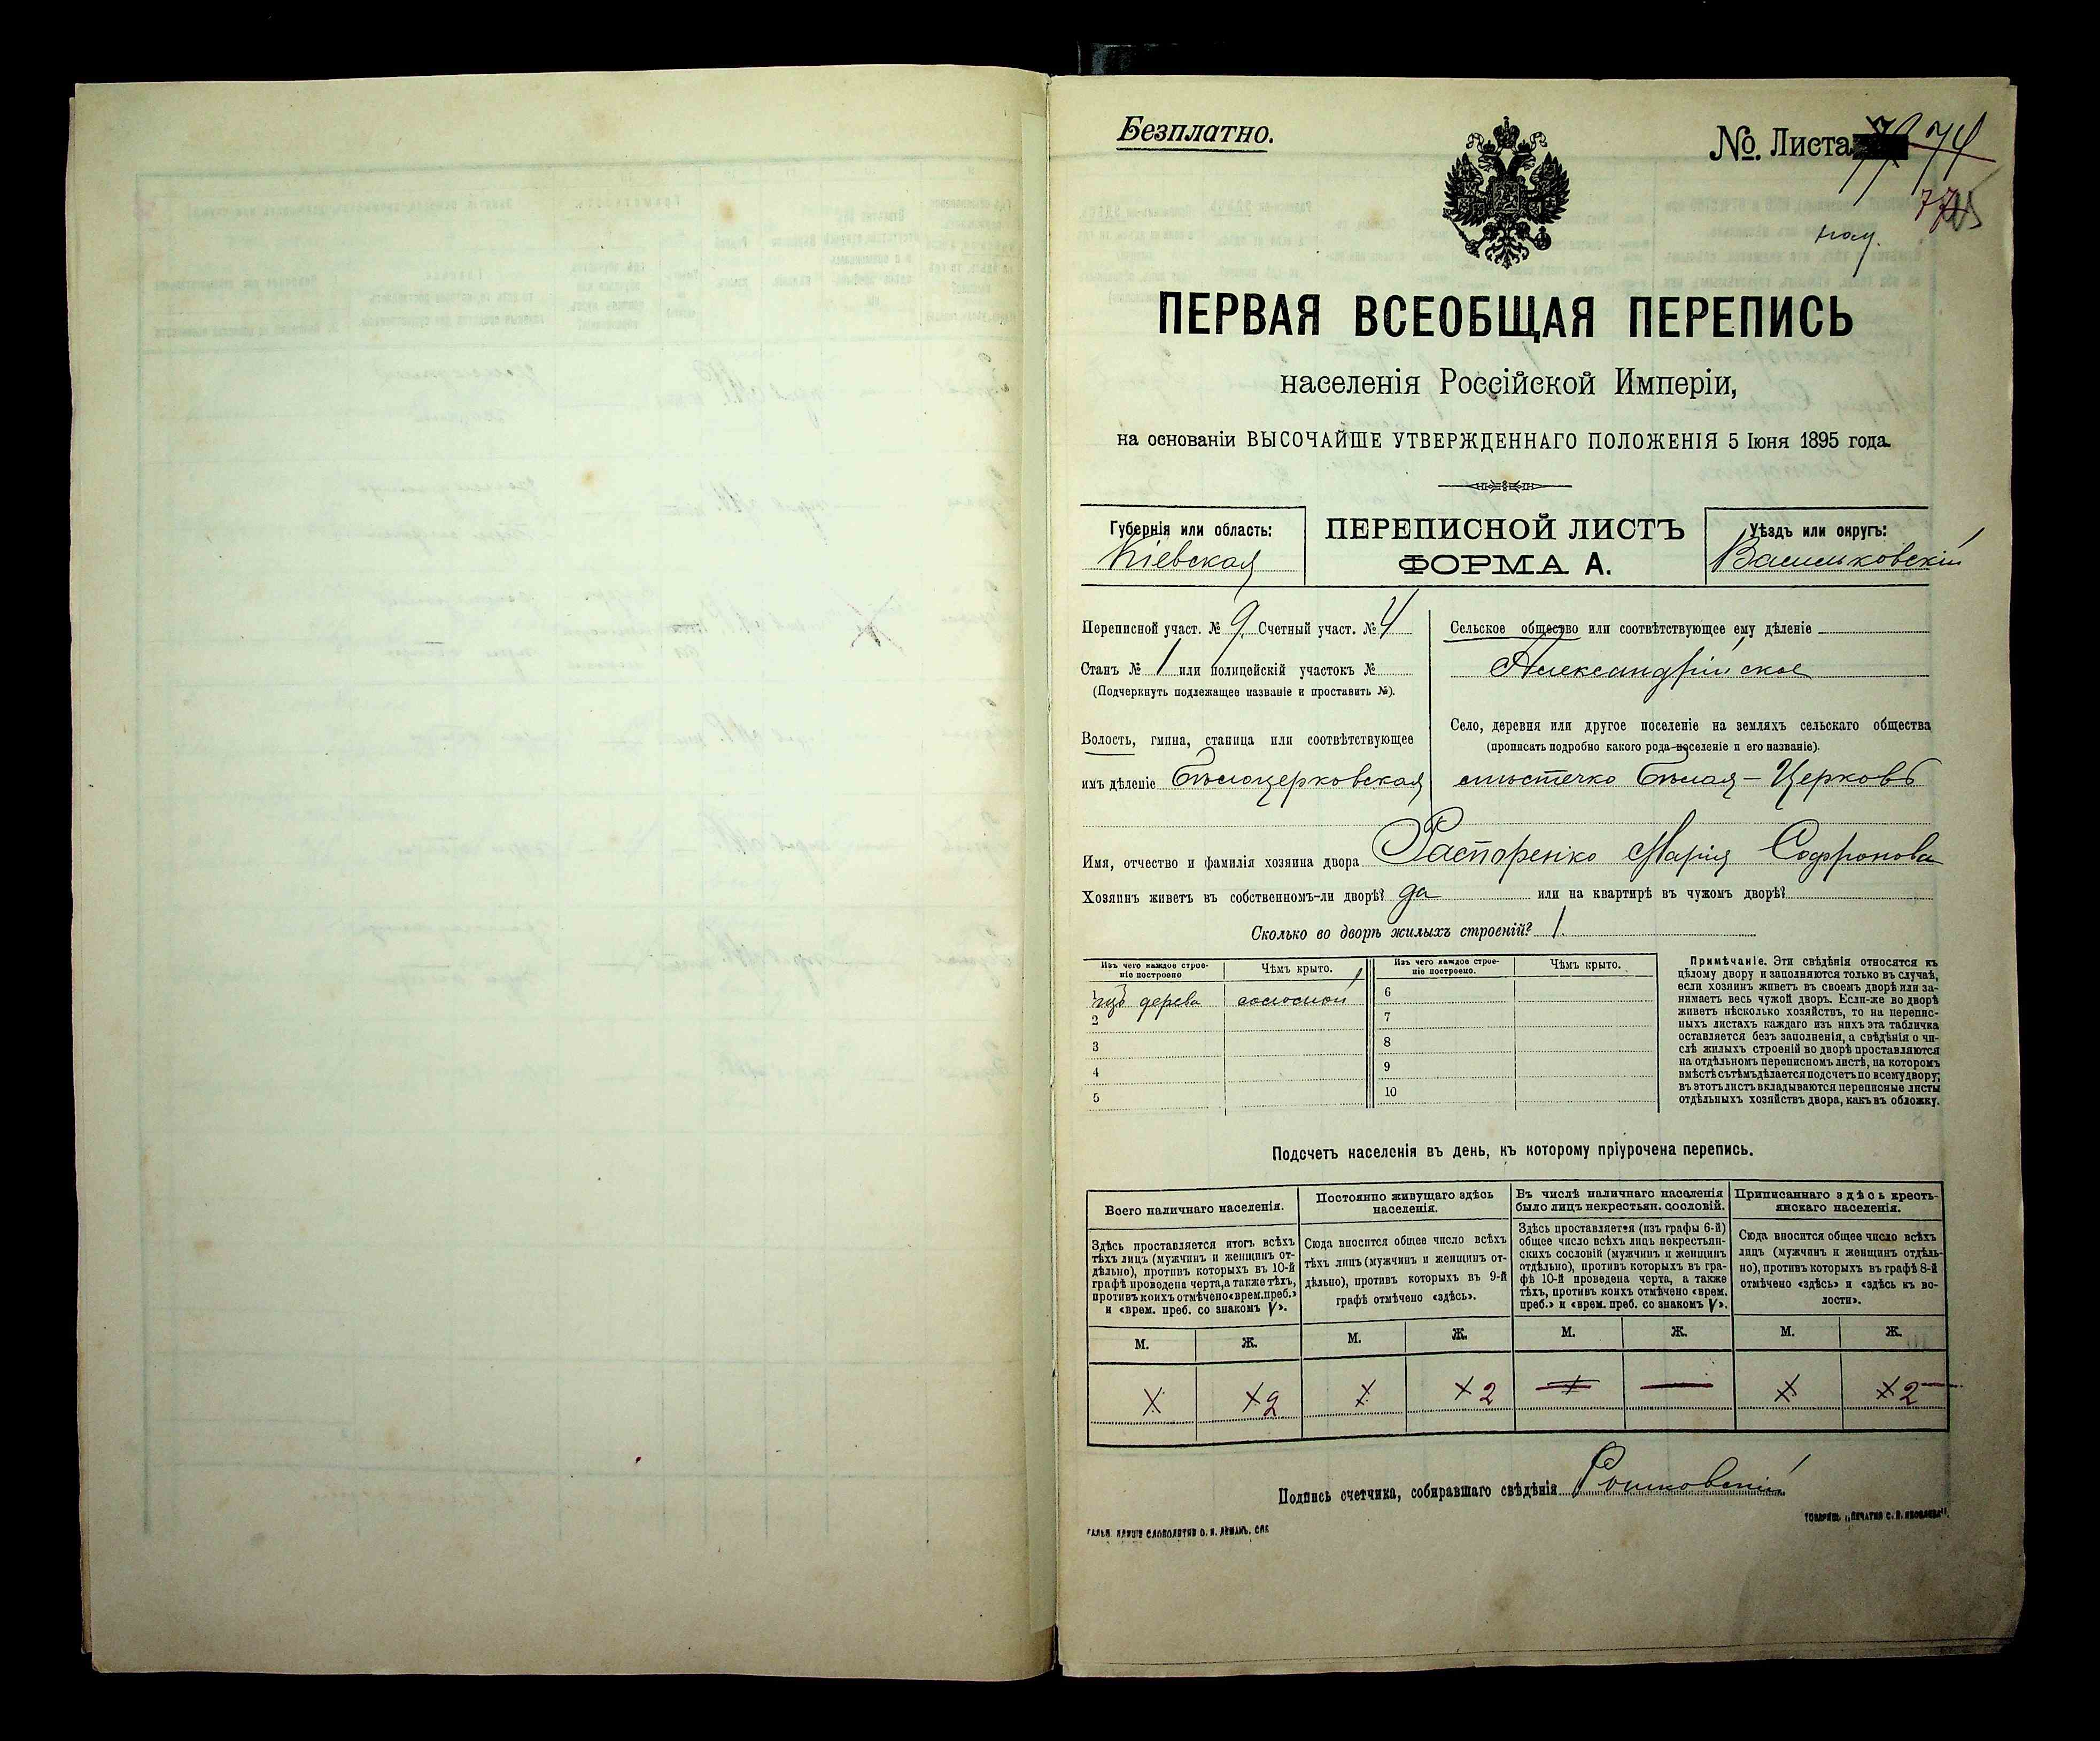 Безплатно.
№ Листа 74
77
ПЕРВАЯ ВСЕОБЩАЯ ПЕРЕПИСЬ
населенія Россійской Имперіи,
на основаніи ВЫСОЧАЙШЕ УТВЕРЖДЕННАГО ПОЛОЖЕНІЯ 5 Іюня 1895 года.
Губернія или область:
Кіевская
ПЕРЕПИСНОЙ ЛИСТЪ
ФОРМА А.
Уѣздъ или округъ:
Васильковскій
Переписной участ. № 9 Счетный участ. № 4
Станъ № 1 или полицейскій участокъ №
(Подчеркнуть подлежащее названіе и проставить №).
Волость, гмина, станица или соотвѣтствующее
имъ дѣленіе Бѣлоцерковская
Сельское общество или соотвѣтствующее ему дѣленіе
Александрійское
Село, деревня или другое поселеніе на земляхъ сельскаго общества
(прописать подробно какого рода поселеніе и его названіе).
мѣстечко Бѣлая-Церковь
Имя, отчество и фамилія хозяина двора Марія Софронова
Хозяинъ живетъ въ собственномъ-ли дворѣ? да или на квартирѣ въ чужомъ дворѣ?
Сколько во дворѣ жилыхъ строеній? 1
Изъ чего каждое строе-
ніе построено
Чѣмъ крыто.
Изъ чего каждое строе-
ніе построено.
Чѣмъ крыто.
1 изъ дерева соломой
2
3
4
5
6
7
8
9
10
Примѣчаніе. Эти свѣдѣнія относятся къ
цѣлому двору и заполняются только въ случаѣ,
если хозяинъ живетъ въ своемъ дворѣ или за-
нимаетъ весь чужой дворъ. Если-же во дворѣ
живетъ нѣсколько хозяйствъ, то на перепис-
ныхъ листахъ каждаго изъ нихъ эта табличка
оставляется безъ заполненія, а свѣдѣнія о чи-
слѣ жилыхъ строеній во дворѣ проставляются
на отдѣльномъ переписномъ листѣ, на которомъ
вмѣстѣ съ тѣмъ дѣлается подсчетъ по всему двору;
въ этотъ листъ вкладываются переписные листы
отдѣльныхъ хозяйствъ двора, какъ въ обложку.
Подсчетъ населенія въ день, къ которому пріурочена перепись.
Всего наличнаго населенія.
Здѣсь проставляется итогъ всѣхъ
тѣхъ лицъ (мужчинъ и женщинъ от-
дѣльно), противъ которыхъ въ 10-й
графѣ проведена черта, а также тѣхъ,
противъ коихъ отмѣчено «врем. преб.»
и «врем. преб. со знакомъ V».
Постоянно живущаго здѣсь
населенія.
Сюда вносится общее число всѣхъ
тѣхъ лицъ (мужчинъ и женщинъ от-
дѣльно), противъ которыхъ въ 9-й
графѣ отмѣчено «здѣсь».
Въ числѣ наличнаго населенія
было лицъ некрестьян. сословій.
Здѣсь проставляется (изъ графы 6-й)
общее число всѣхъ лицъ некрестьян-
скихъ сословій (мужчинъ и женщинъ
отдѣльно), противъ которыхъ въ гра-
фѣ 10-й проведена черта, а также
тѣхъ, противъ коихъ отмѣчено «врем.
преб.» и «врем. преб. со знакомъ V».
Приписаннаго здѣсь кресть-
янскаго населенія.
Сюда вносится общее число всѣхъ
лицъ (мужчинъ и женщинъ отдѣль-
но), противъ которыхъ въ графѣ 8-й
отмѣчено «здѣсь» и «здѣсь къ во-
лости».
М. Ж. М. Ж. М. Ж. М. Ж.
X X 2 X X 2 — — X X 2
Подпись счетчика, собиравшаго свѣдѣнія